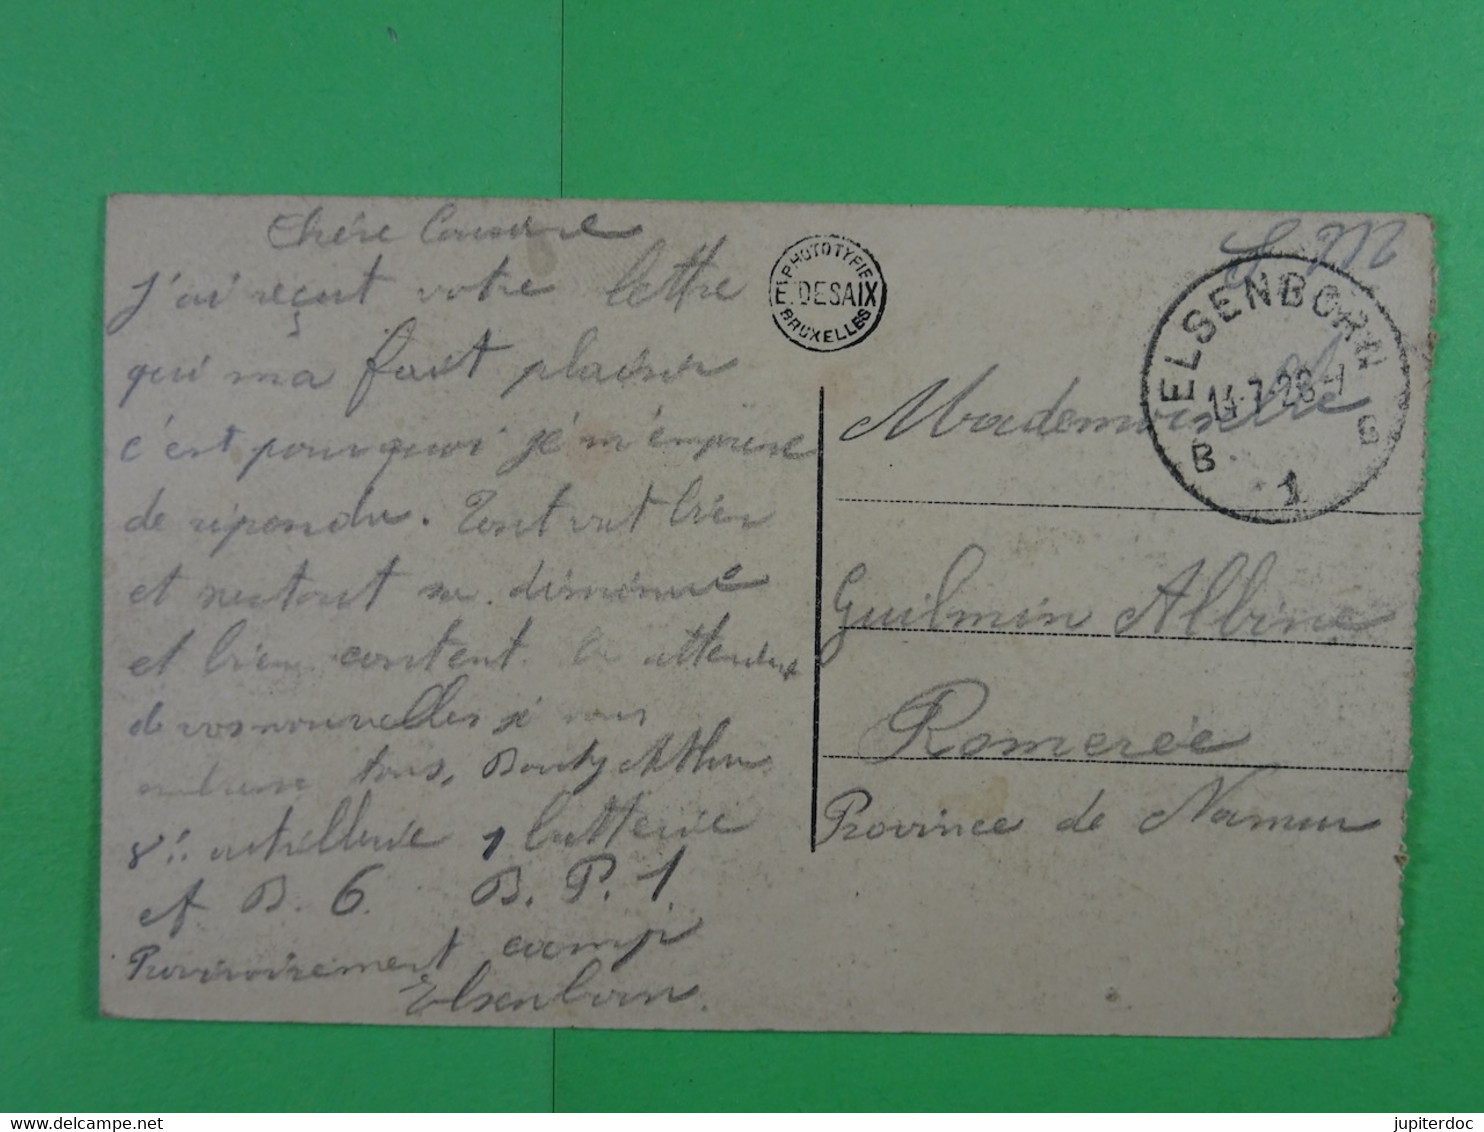 Chère Cousine
J'ai reçut votre lettre
qui ma fait plaisir
c'est pourquoi je m'emprese
de repondre. Tout vat bien
et surtout
et bien content. En attendent
de vos nouvelles je vous
embrasse tous,
8e artillerie 1 batterie
et B. 6. B. P. 1.
Provisoirement camp
Elsenborn.
PHOTOTYPIE
E. DESAIX
BRUXELLES
S M
ELSENBORN
14-7-28-
B 1 B
Mademoiselle
Guilmin Albine
Romerée
Province de Namur
delcampe.net
jupiterdoc